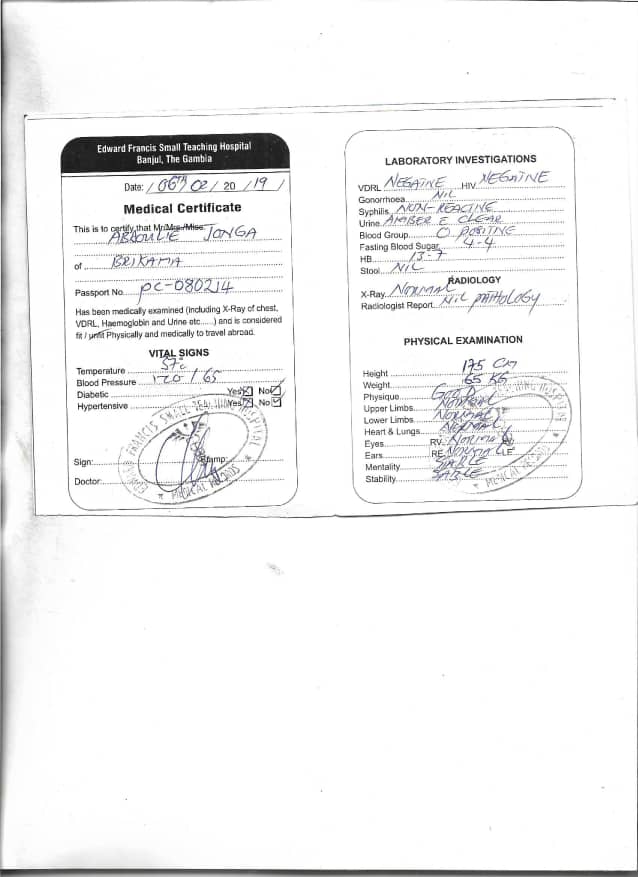 Edward Francis Small Teaching Hospital
Banjul, The Gambia
Date: / 06TH / 02 / 20 / 19 /
Medical Certificate
This is to certify that Mr/Mrs./Miss.
ABDOULIE JONGA
of BRIKAMA
Passport No. PC-080214
Has been medically examined (including X-Ray of chest,
VDRL, Haemoglobin and Urine etc......) and is considered
fit / unfit Physically and medically to travel abroad.
VITAL SIGNS
Temperature 37c
Blood Pressure 120 / 65
Diabetic Yes No
Hypertensive Yes No
EDWARD FRANCIS SMALL TEACHING HOSPITAL
Sign: Stamp:
Doctor:
MEDICAL RECORDS
LABORATORY INVESTIGATIONS
VDRL NEGATIVE HIV NEGATIVE
Gonorrhoea NIL
Syphilis NON-REACTIVE
Urine AMBER & CLEAR
Blood Group O POSITIVE
Fasting Blood Sugar 4-4
HB 13-7
Stool NIL
RADIOLOGY
X-Ray NORMAL
Radiologist Report NIL PATHOLOGY
PHYSICAL EXAMINATION
Height 175 CM
Weight 65 KG
Physique GOOD
Upper Limbs NORMAL
Lower Limbs NORMAL
Heart & Lungs NORMAL
Eyes RV NORMAL
Ears RE NORMAL LE
Mentality STABLE
Stability STABLE
MEDICAL RECORDS